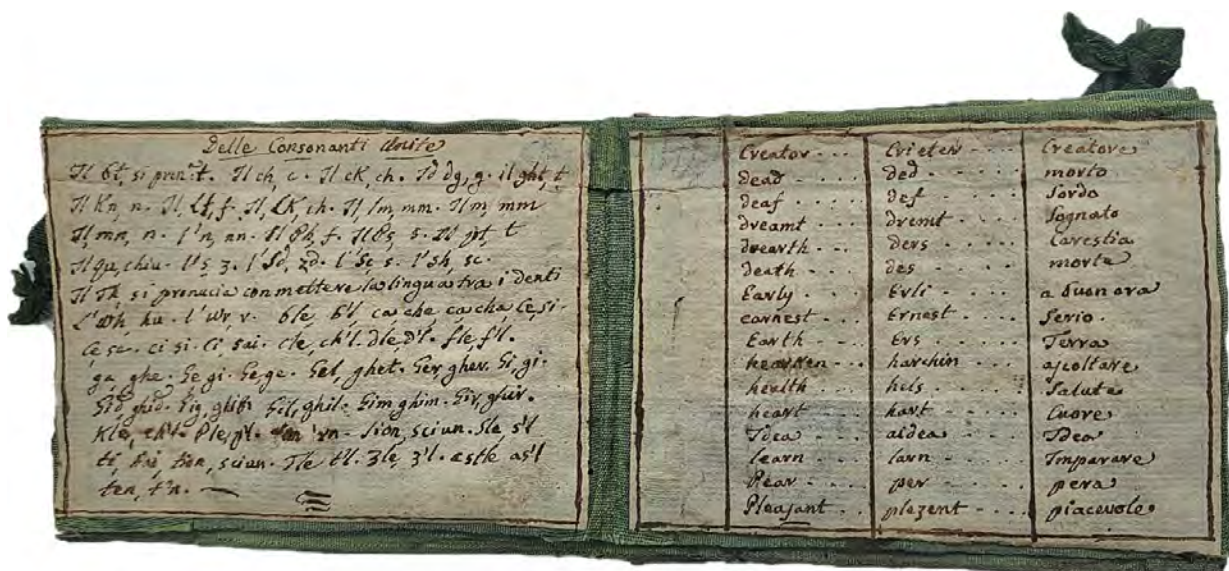 Delle Consonanti Unite
Il bt, si pron:t. Il ch, c. Il cK, ch. Id dg, g. il ght, t
Il Kn, n. Il, Lf, f. Il, LK, ch. Il, lm, mm. Il m, mm
Il, mn, n. l'n, nn. Il Ph, f. Il Ps, s. Il pt, t
Il qu, chiu. l's, z. l'Sd, zd. l'Sc s. l'sh, sc.
Il Th si pronucia con mettere la lingua tra i denti
L'Wh, hu. l'wr, r. ble, b'l ca che ca cha Ce, si.
Ce, se. ci si. Ci, sai. cle, ch'l. dle d'l. fle, f'l.
ga, ghe. Ge gi. Ge, ge. Get, ghet. Ger gher. Gi, gi.
Gid ghid. Gig, ghibi Gil, ghil. Gim ghim. Gir, ghir.
Kle, ch'l. Ple, p'l. 'rn. Sion, sciun. Sle s'l
ti, tion, sciun. Tle t'l. Zle, z'l. astle as'l
ten, t'n.
Creator - - - Crieter - - - - Creatore
dead - - - ded - - - - - morto
deaf - - - def - - - - - Sordo
dreamt - - - dremt - - - - - Sognato
drearth - - - ders - - - - - Carestia
death - - - des - - - - - morte
Early - - - Erli - - - - - a buon ora
earnest - - - Ernest - - - - Serio.
Earth - - - Ers - - - - - Terra
hearken - - - harchin - - - - ascoltare
health - - - hels - - - - - Salute
heart - - - hart - - - - - Cuore
Idea - - - aidea - - - - Idea
learn - - - larn - - - - - Imparare
Pear - - - per - - - - - pera
Pleasant - - plezent - - - - piacevole